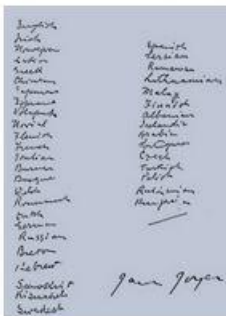 English
Irish
Norwegian
Latin
Greek
Chinese
Japanese
Esperanto
Volapuk
Novial
Flemish
French
Italian
Burmese
Basque
Welsh
Roumansch
Dutch
German
Russian
Breton
Hebrew
Sanskrit
Kiswahili
Swedish
Spanish
Persian
Rumanian
Lithuanian
Malay
Finnish
Albanian
Icelandic
Arabic
Portuguese
Czech
Turkish
Polish
Ruthenian
Hungarian
James Joyce